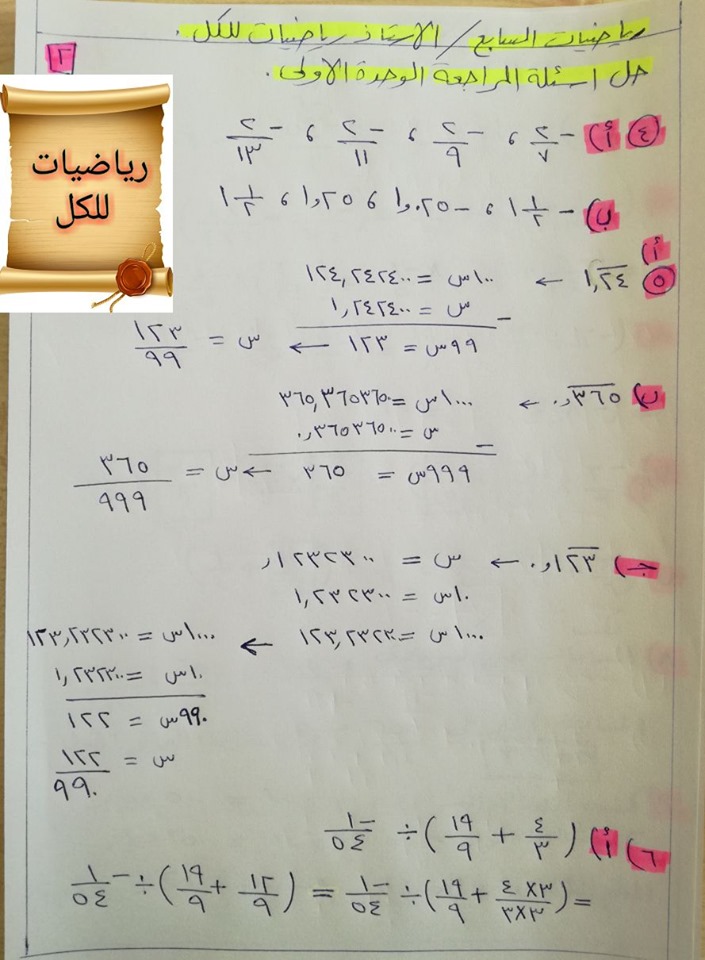 رياضيات السابع / الاستاذ رياضيات للكل.
حل اسئلة المراجعة الوحدة الاولى.
٢
رياضيات
للكل
٤ أ) -٢/٧ ، -٢/٩ ، -٢/١١ ، -٢/١٣
ب) -١ ١/٢ ، -١٫٠٢٥ ، ١٫٢٥ ، ١ ١/٢
أ)
٥ ١٫٢٤̅ ← ١٠٠س = ١٢٤٫٢٤٢٤٠٠
- س = ١٫٢٤٢٤٠٠
٩٩س = ١٢٣ ← س = ١٢٣/٩٩
ب) ٠٫٣٦٥̅ ← ١٠٠٠س = ٣٦٥٫٣٦٥٣٦٥٠٠
- س = ٠٫٣٦٥٣٦٥٠٠
٩٩٩س = ٣٦٥ ← س = ٣٦٥/٩٩٩
جـ) ٠٫١٢٣̅ ← س = ٫١٢٣٢٣٠٠
١٠س = ١٫٢٣٢٣٠٠
١٠٠٠س = ١٢٣٫٢٣٢٣ ← ١٠٠٠س = ١٢٣٫٢٣٢٣٠٠
١٠س = ١٫٢٣٢٣٠٠
٩٩٠س = ١٢٢
س = ١٢٢/٩٩٠
٦) أ) (٤/٣ + ١٩/٩) ÷ -١/٥٤
= (٣×٤/٣×٣ + ١٩/٩) ÷ -١/٥٤ = (١٢/٩ + ١٩/٩) ÷ -١/٥٤